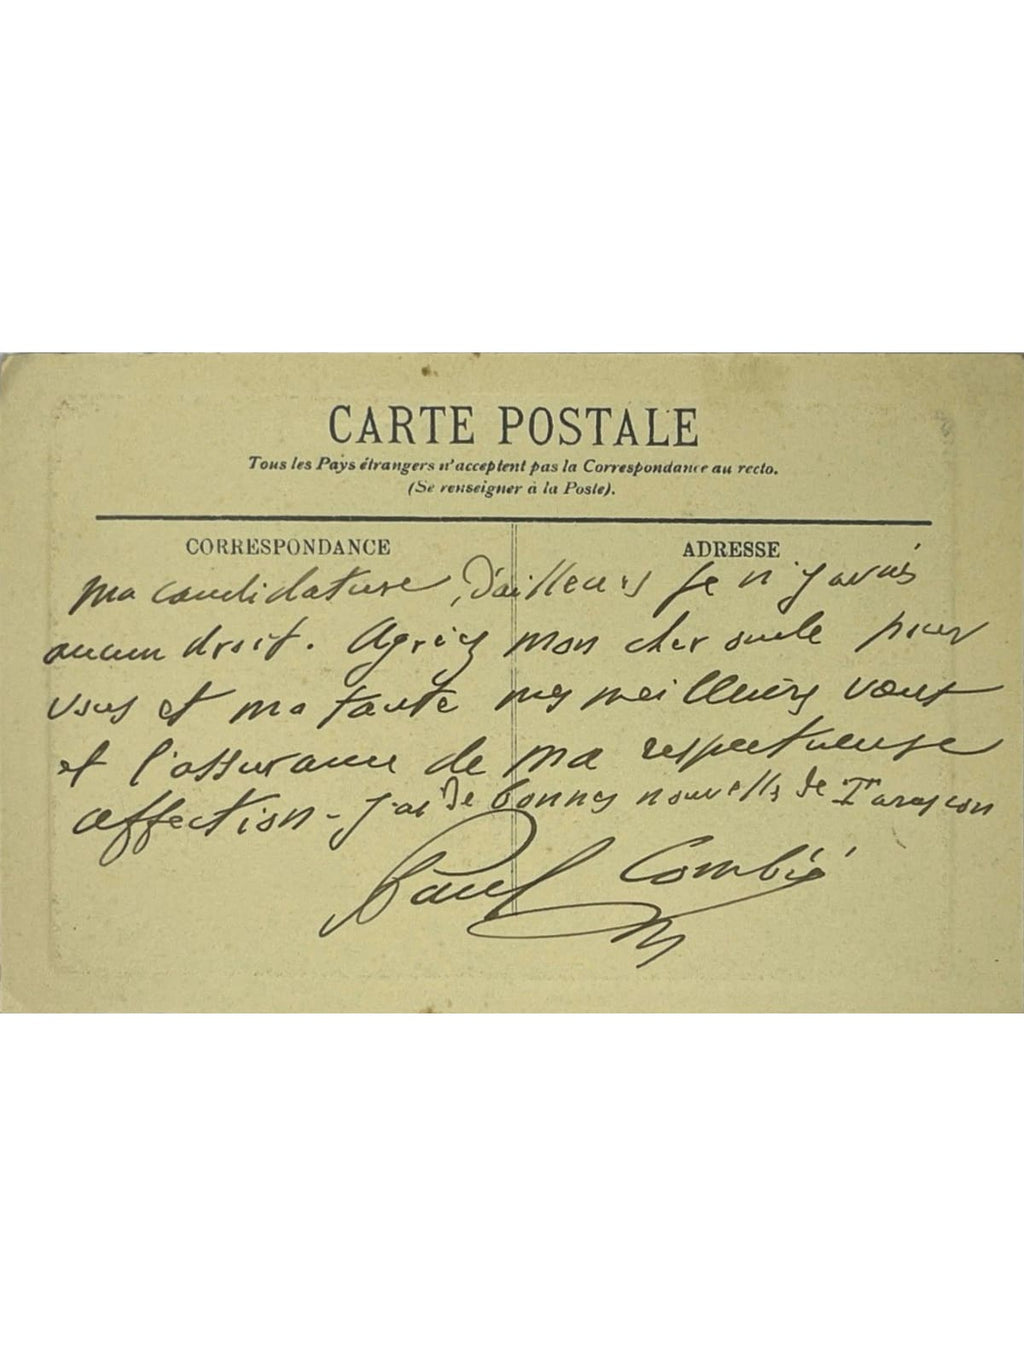 CARTE POSTALE
Tous les Pays étrangers n'acceptent pas la Correspondance au recto.
(Se renseigner à la Poste).
CORRESPONDANCE
ADRESSE
ma candidature, D'ailleurs je n'y avais
aucun droit. Agréez mon cher oncle pour
vous et ma tante mes meilleurs vœux
et l'assurance de ma respectueuse
affection - J'ai de bonnes nouvelles de Tarascon
Paul Combié